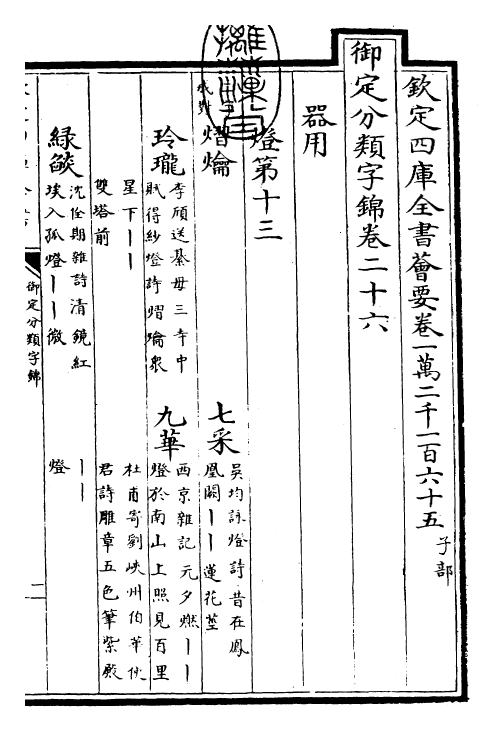 欽定四庫全書薈要卷一萬二千一百六十五 子部
御定分類字錦卷二十六
器用
燈第十三
成對
熠爚
七采
吳均詠燈詩昔在鳳
凰闕丨丨蓮花莖
玲瓏
李頎送綦毋三寺中
賦得紗燈詩熠爚衆
星下丨丨
雙塔前
九華
西京雜記元夕燃丨丨
燈於南山上照見百里
杜甫寄劉峽州伯華使
君詩雕章五色筆紫殿
丨丨
燈
綠燄
沈佺期雜詩清鏡紅
埃入孤燈丨丨微
御定分類字錦
二